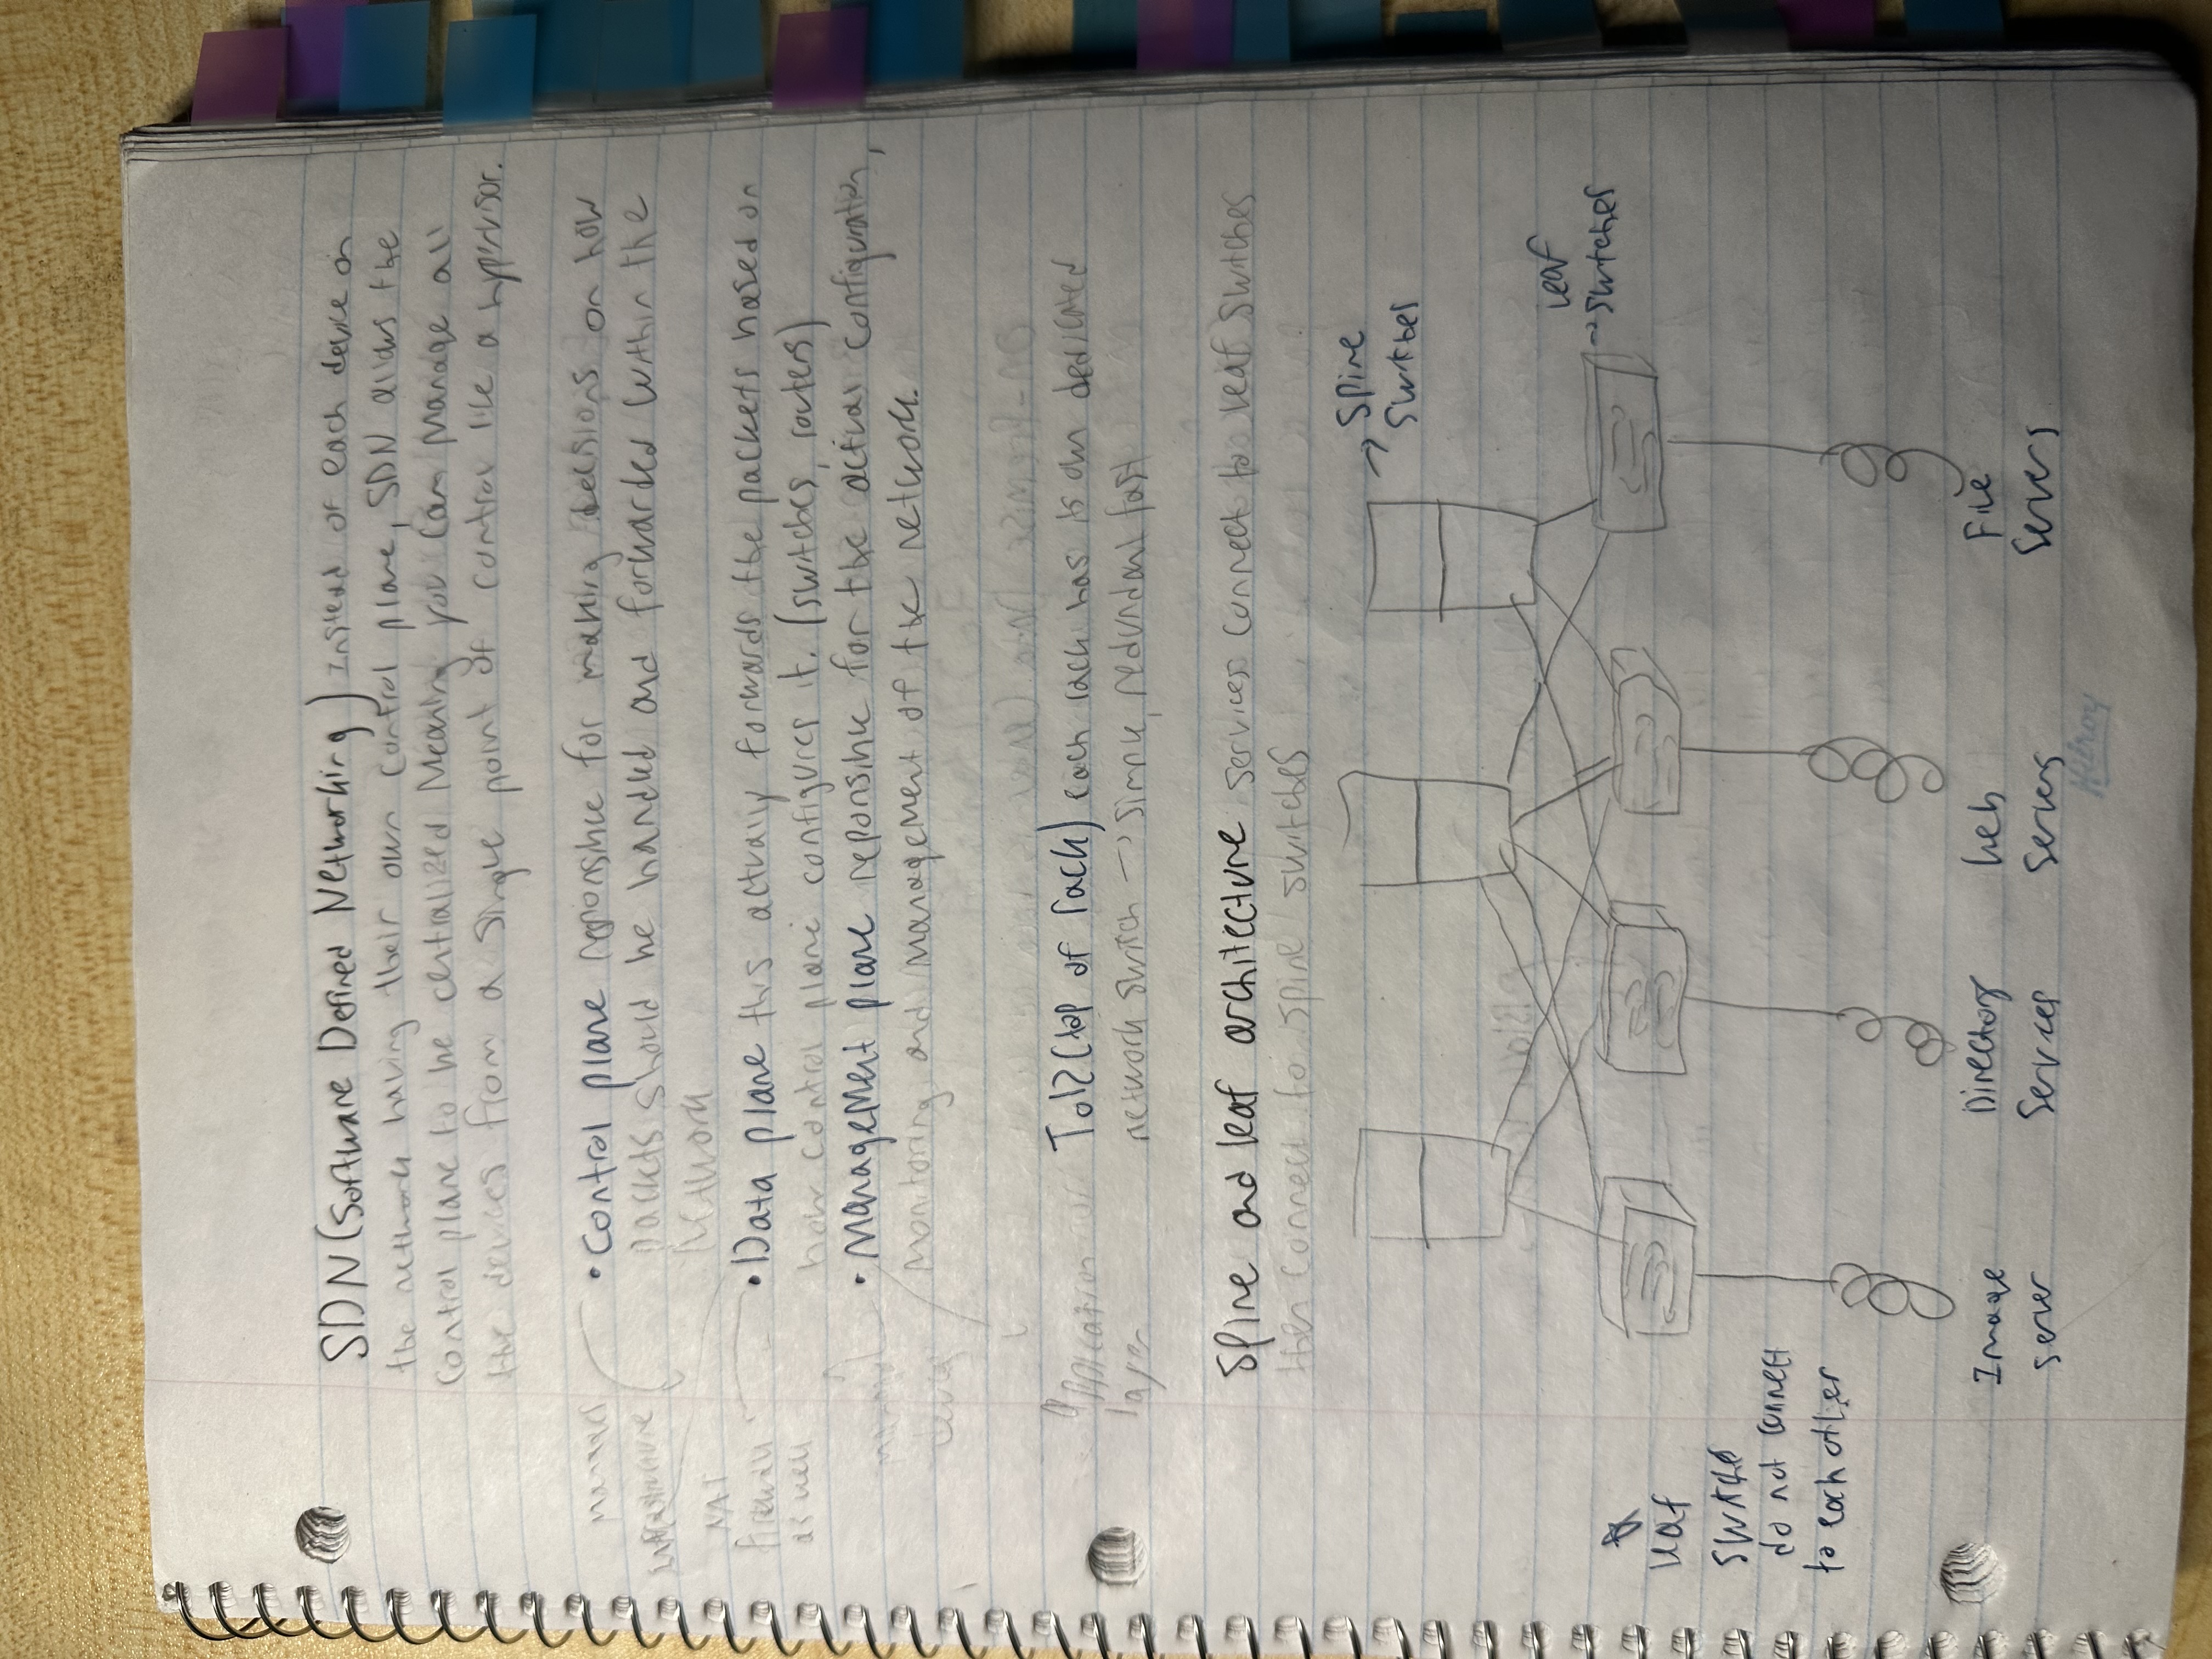 SDN (Software Defined Networking) Instead of each device on
the network having their own control plane, SDN allows the
control plane to be centralized Meaning you can manage all
the devices from a single point of control like a hypervisor.
manages
infrastructure
• Control plane responsible for making decisions on how
packets should be handled and forwarded within the
network
NAT
firewall
as well
• Data plane this actually forwards the packets based on
how control plane configures it. (switches, routers)
• Management plane reponsible for the actual configuration,
monitoring and management of the network.
Application
layer
ToR (top of rack) each rack has its own dedicated
network switch → simple, redundant fast
Spine and leaf architecture services connect to leaf switches
then connect to spine switches
→ Spine
switches
leaf
→ switches
☆
leaf
do not connect
to each other
Image
server
Directory
Services
Web
Servers
File
Servers
Hilroy